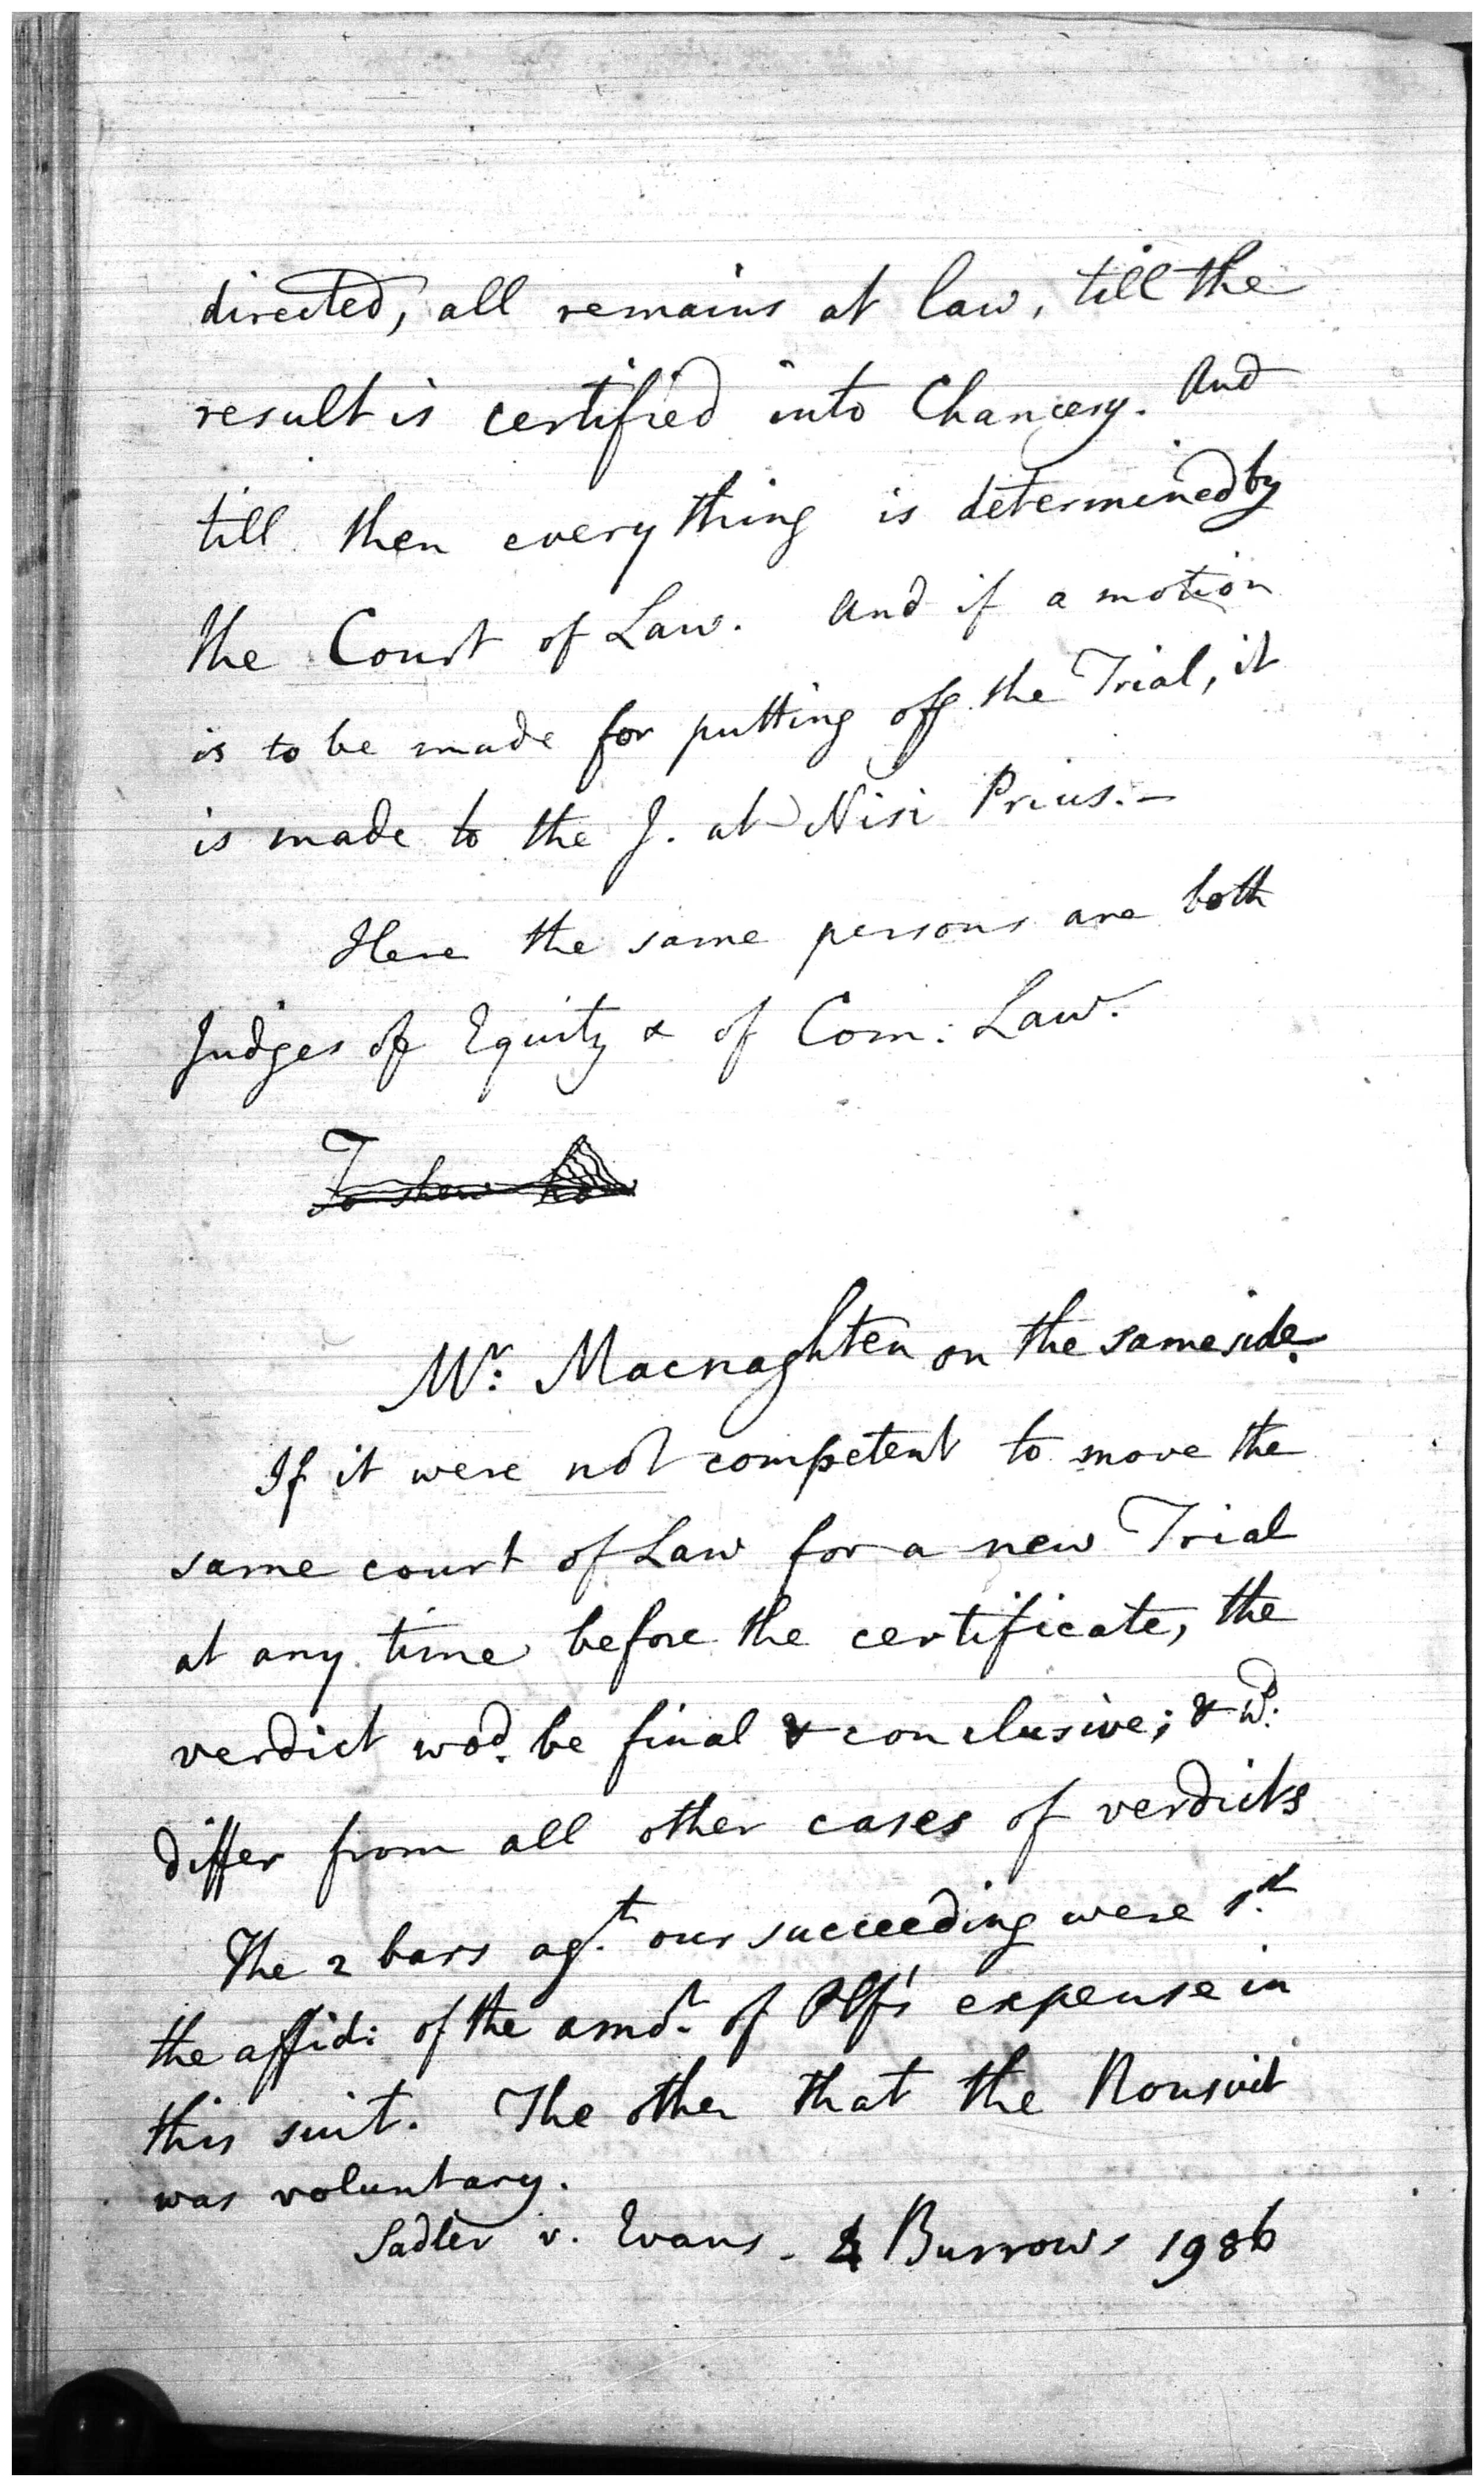 directed, all remains at law, till the
result is certified into Chancery. And
till then every thing is determined by
the Court of Law. And if a motion
is to be made for putting off the Trial, it
is made to the J. at Nisi Prius.—
Here the same persons are both
Judges of Equity & of Com: Law.
To shew
Mr: Macnaghten on the same side.
If it were not competent to move the
same court of Law for a new Trial
at any time before the certificate, the
verdict wod. be final & conclusive; & wd.
differ from all other cases of verdicts
The 2 bars agt. our succeeding were 1st.
the affid: of the amot. of Plf's expense in
this suit. The other that the Nonsuit
was voluntary.
Sadler v. Evans - 4 Burrows 1986